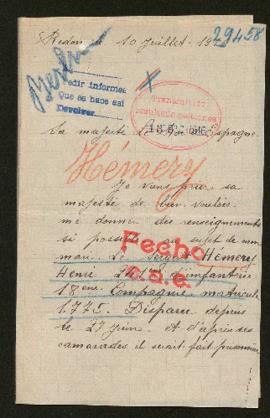 Redon le 10 Juillet 19
29458
Berlin
Pedir informes
Que se hace así
Devolver.
Transmitir
Sa majesté Espagne.
Hémery
Je vous prie sa
majesté de bien vouloir
me donner des renseignements
si possible sujet de mon
mari Le Sergent Hémery
Henri 2 d'infanterie
18eme Compagnie matricule
1.775. Disparu depuis
le 27 juin et d'après ses
camarades il serait fait prisonnier
Fecha
s.e.